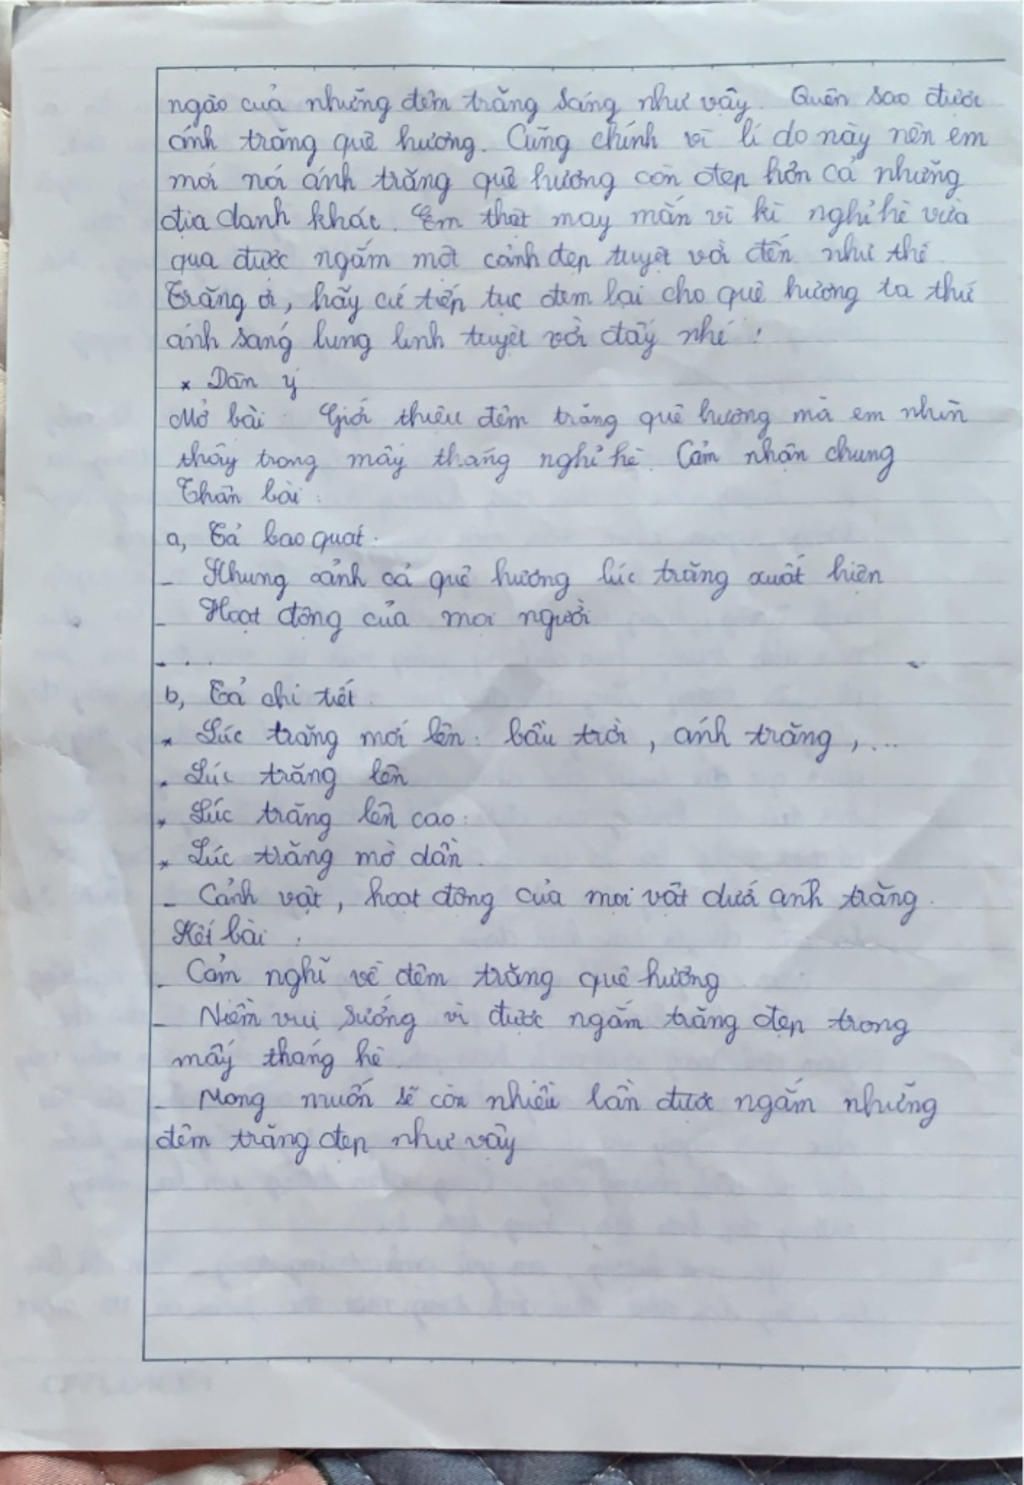 ngào của những đêm trăng sáng như vậy. Quên sao được
ánh trăng quê hương. Cũng chính vì lí do này nên em
mới nói ánh trăng quê hương còn đẹp hơn cả những
địa danh khác. Em thật may mắn vì kì nghỉ hè vừa
qua được ngắm một cảnh đẹp tuyệt vời đến như thế.
Trăng ơi, hãy cứ tiếp tục đem lại cho quê hương ta thứ
ánh sáng lung linh tuyệt vời đấy nhé !
* Dàn ý
Mở bài : Giới thiệu đêm trăng quê hương mà em nhìn
thấy trong mấy tháng nghỉ hè. Cảm nhận chung
Thân bài :
a, Tả bao quát.
- Khung cảnh cả quê hương lúc trăng xuất hiện
- Hoạt động của mọi người
- . .
b, Tả chi tiết.
* Lúc trăng mới lên: bầu trời, ánh trăng, ...
* Lúc trăng lên
* Lúc trăng lên cao:
* Lúc trăng mờ dần.
- Cảnh vật, hoạt động của mọi vật dưới ánh trăng.
Kết bài :
- Cảm nghĩ về đêm trăng quê hương
- Niềm vui sướng vì được ngắm trăng đẹp trong
mấy tháng hè.
- Mong muốn sẽ còn nhiều lần được ngắm những
đêm trăng đẹp như vậy